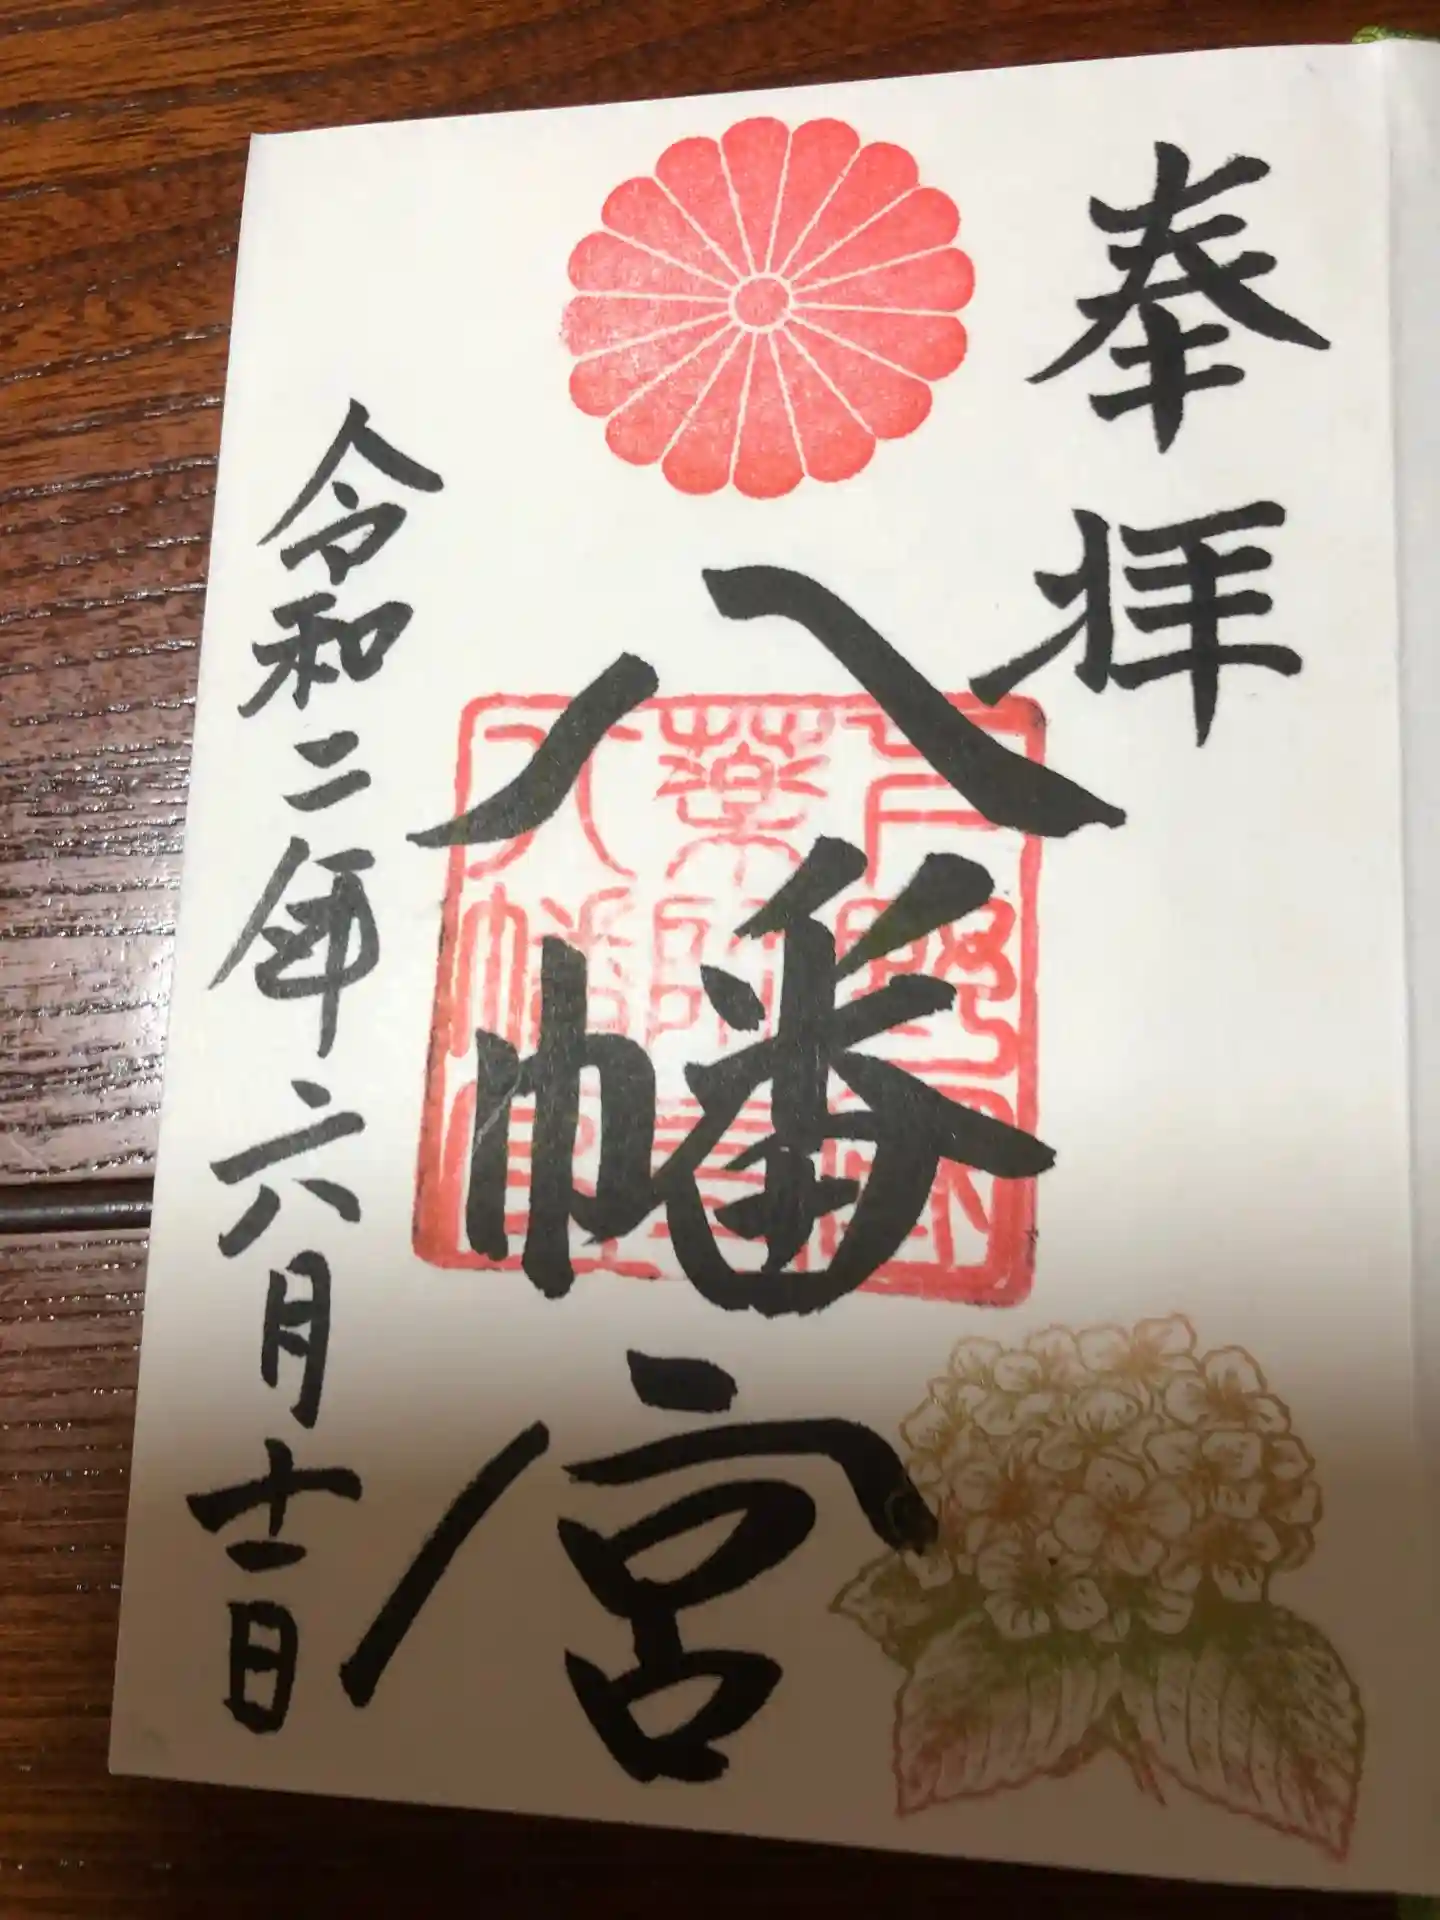 奉拝
八幡宮
令和二年六月十一日